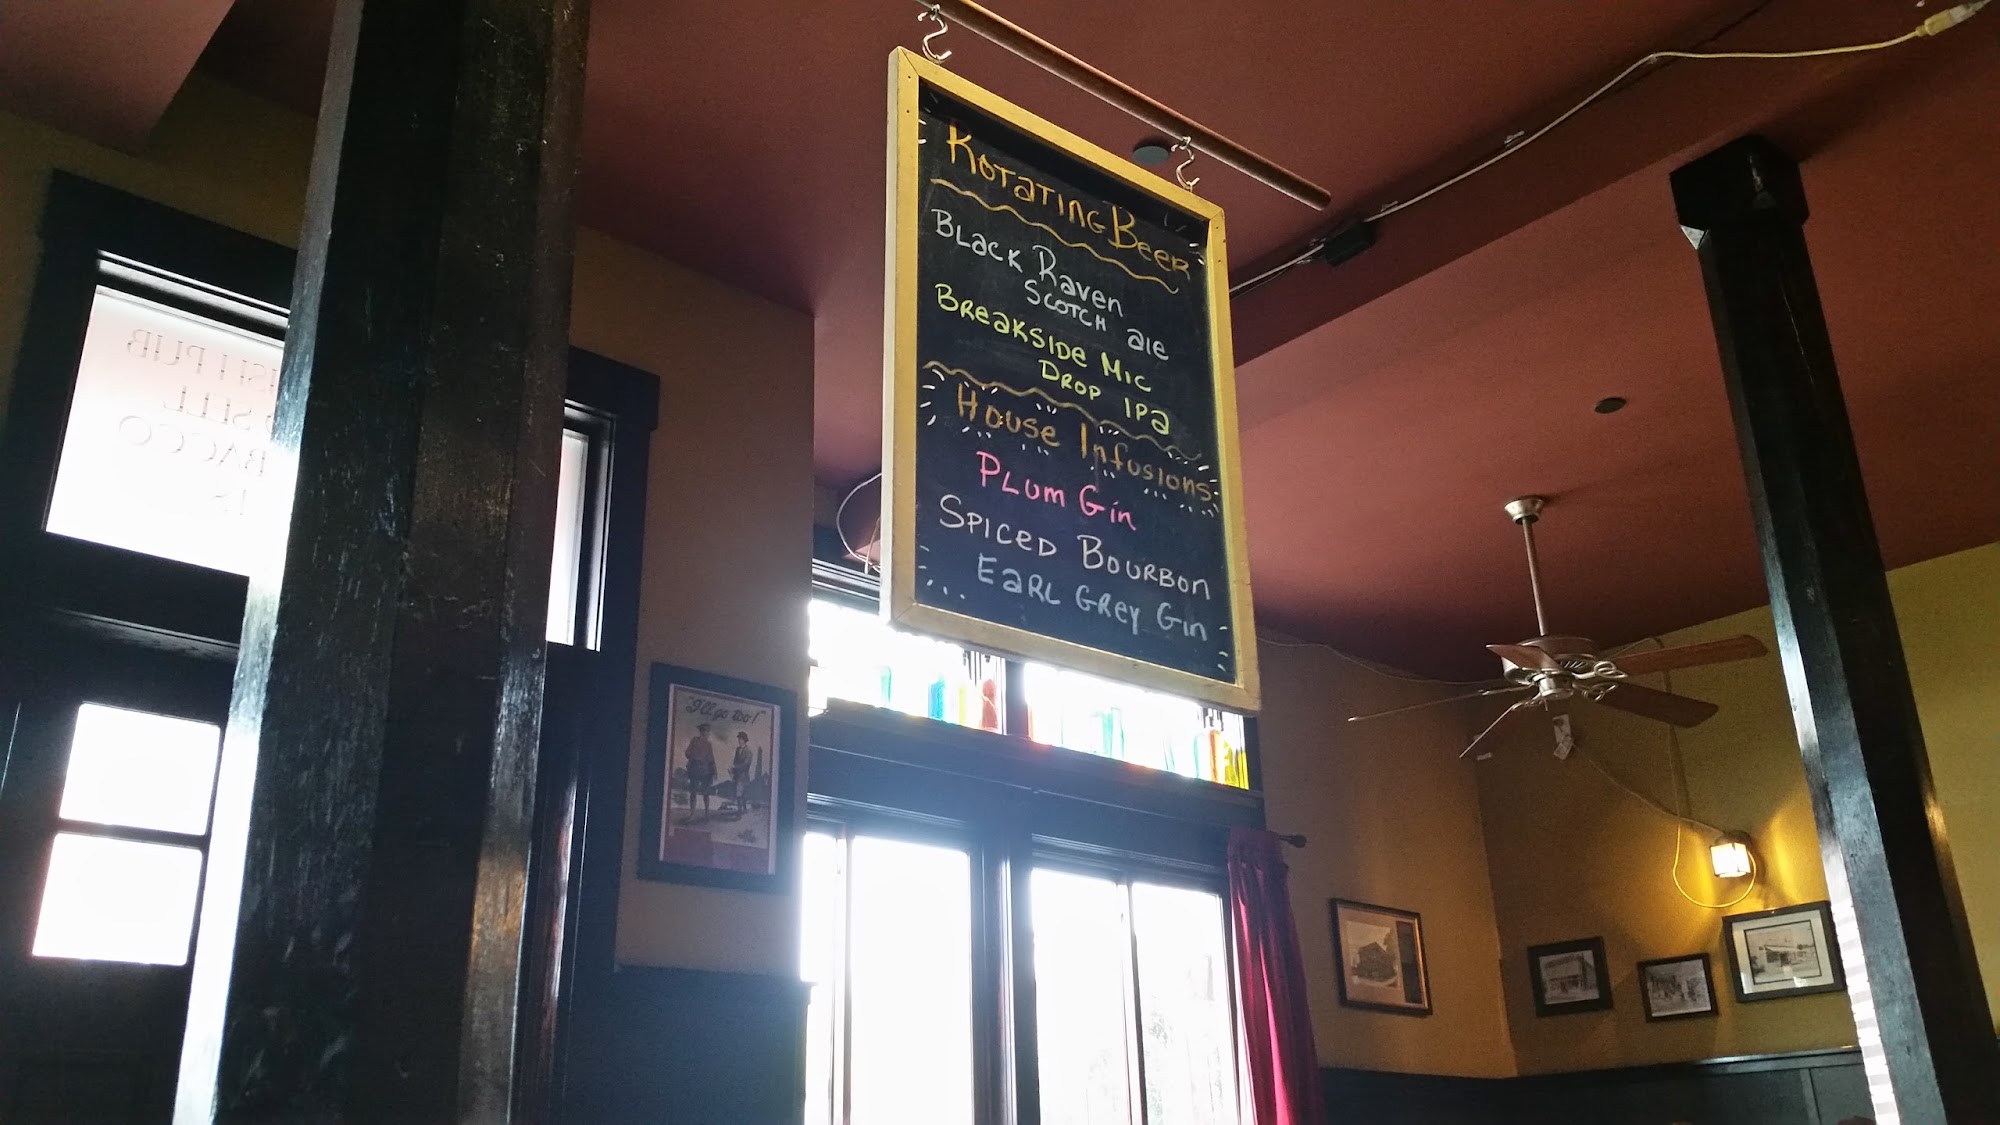 Rotating Beer
Black Raven
Scotch ale
Breakside Mic
Drop IPa
House Infusions
Plum Gin
Spiced Bourbon
Earl Grey Gin
"I'll go too!"
ISH PUB
SELL
BACCO